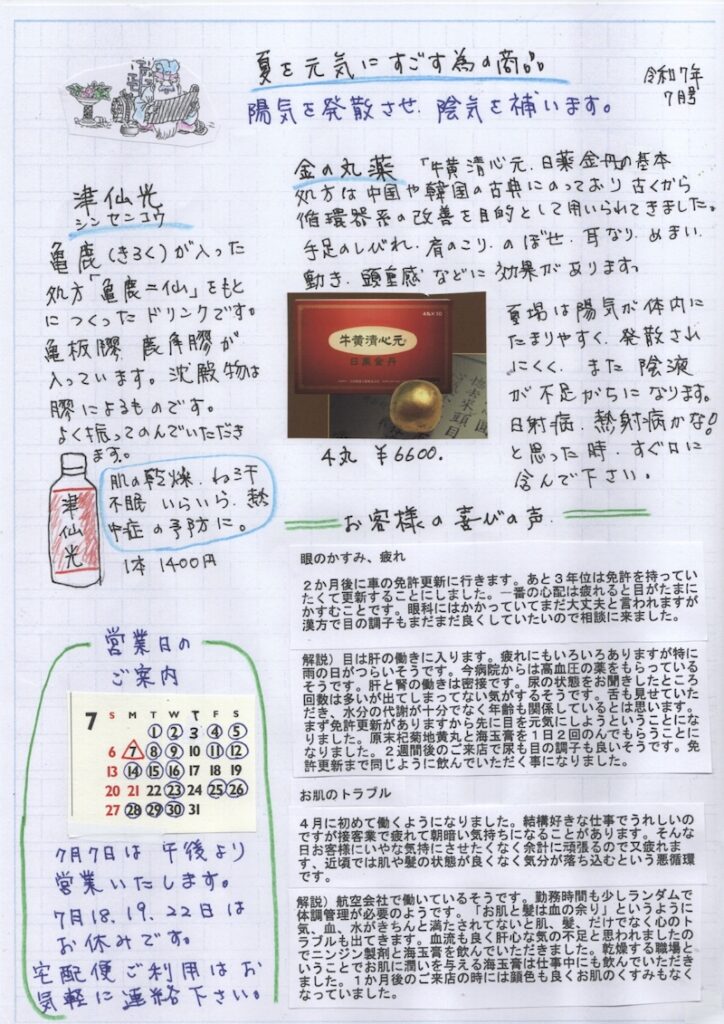 夏を元気にすごす為の商品
令和7年
7月号
陽気を発散させ、陰気を補います。
津仙光
シンセンコウ
亀鹿(きろく)が入った
処方「亀鹿二仙」をもと
につくったドリンクです。
亀板膠 鹿角膠が
入っています。沈殿物は
膠によるものです。
よく振ってのんでいただき
ます。
津仙光
肌の乾燥、ね汗
不眠 いらいら、熱
中症の予防に。
1本 1400円
金の丸薬 「牛黄清心元、日薬金丹の基本
処方は中国や韓国の古典にのっており古くから
循環器系の改善を目的として用いられてきました。
手足のしびれ、肩のこり、のぼせ、耳なり、めまい、
動き、頭重感 などに効果があります。
4丸×10
牛黄清心元
日薬金丹
4丸 ¥6600.
夏場は陽気が体内に
たまりやすく、発散され
にくく、また陰液
が不足がちになります。
日射病、熱射病かな!
と思った時、すぐ口に
含んで下さい。
お客様の喜びの声
眼のかすみ、疲れ
2か月後に車の免許更新に行きます。あと3年位は免許を持ってい
たくて更新することにしました。一番の心配は疲れると目がたまに
かすむことです。眼科にはかかっていてまだ大丈夫と言われますが
漢方で目の調子もまだまだ良くしていたいので相談に来ました。
解説)目は肝の働きに入ります。疲れにもいろいろありますが特に
雨の日がつらいそうです。今病院からは高血圧の薬をもらっている
そうです。肝と腎の働きは密接です。尿の状態をお聞きしたところ
回数は多いが出てしまってない気がするそうです。舌も見せていた
だき、水分の代謝が十分でなく年齢も関係しているとは思います。
まず免許更新がありますから先に目を元気にしようということにな
りました。原末杞菊地黄丸と海玉膏を1日2回のんでもらうことに
なりました。2週間後のご来店で尿も目の調子も良いそうです。免
許更新まで同じように飲んでいただく事になりました。
お肌のトラブル
4月に初めて働くようになりました。結構好きな仕事でうれしいの
ですが接客業で疲れて朝暗い気持ちになることがあります。そんな
日お客様にいやな気持にさせたくなく余計に頑張るので又疲れま
す、近頃では肌や髪の状態が良くなく気分が落ち込むという悪循環
です。
解説)航空会社で働いているそうです。勤務時間も少しランダムで
体調管理が必要のようです。「お肌と髪は血の余り」というように
気、血、水がきちんと満たされてないと肌、髪、だけでなく心のト
ラブルも出てきます。血流も良く肝心な気の不足と思われましたの
でニンジン製剤と海玉膏を飲んでいただきました。乾燥する職場と
いうことでお肌に潤いを与える海玉膏は仕事中にも飲んでいただき
ました。1か月後のご来店の時には顔色も良くお肌のくすみもなく
なっていました。
営業日の
ご案内
7 S M T W T F S
1 2 3 4 5
6 7 8 9 10 11 12
13 14 15 16 17 18 19
20 21 22 23 24 25 26
27 28 29 30 31
7月7日は 午後より
営業いたします。
7月18、19、22日は
お休みです。
宅配便ご利用はお
気軽に連絡下さい。